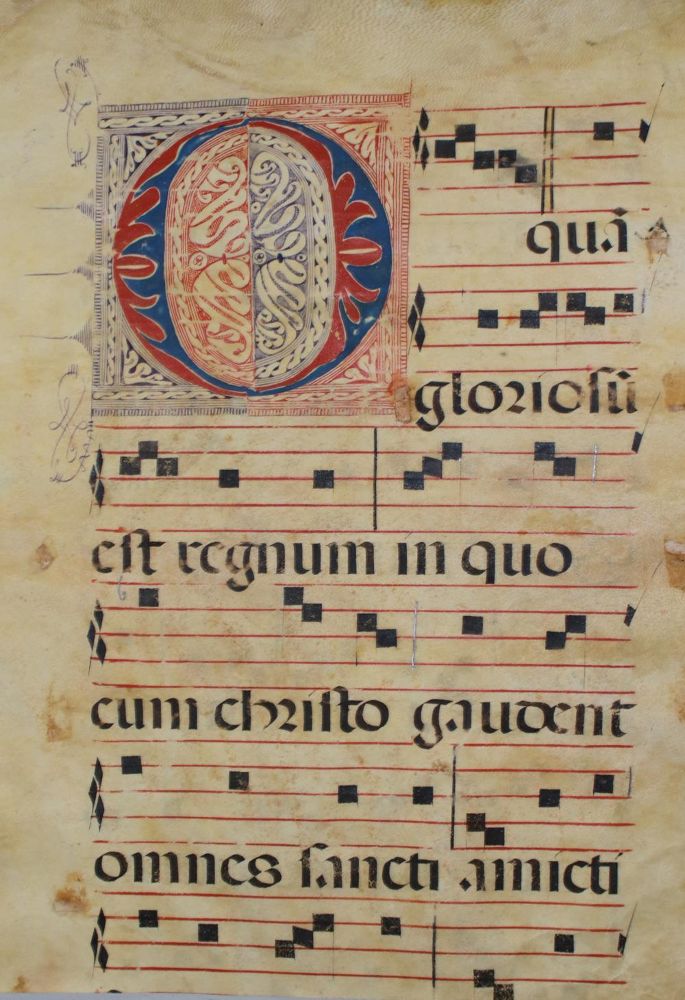 O
quã
gloriosũ
est regnum in quo
cum christo gaudent
omnes sancti amicti